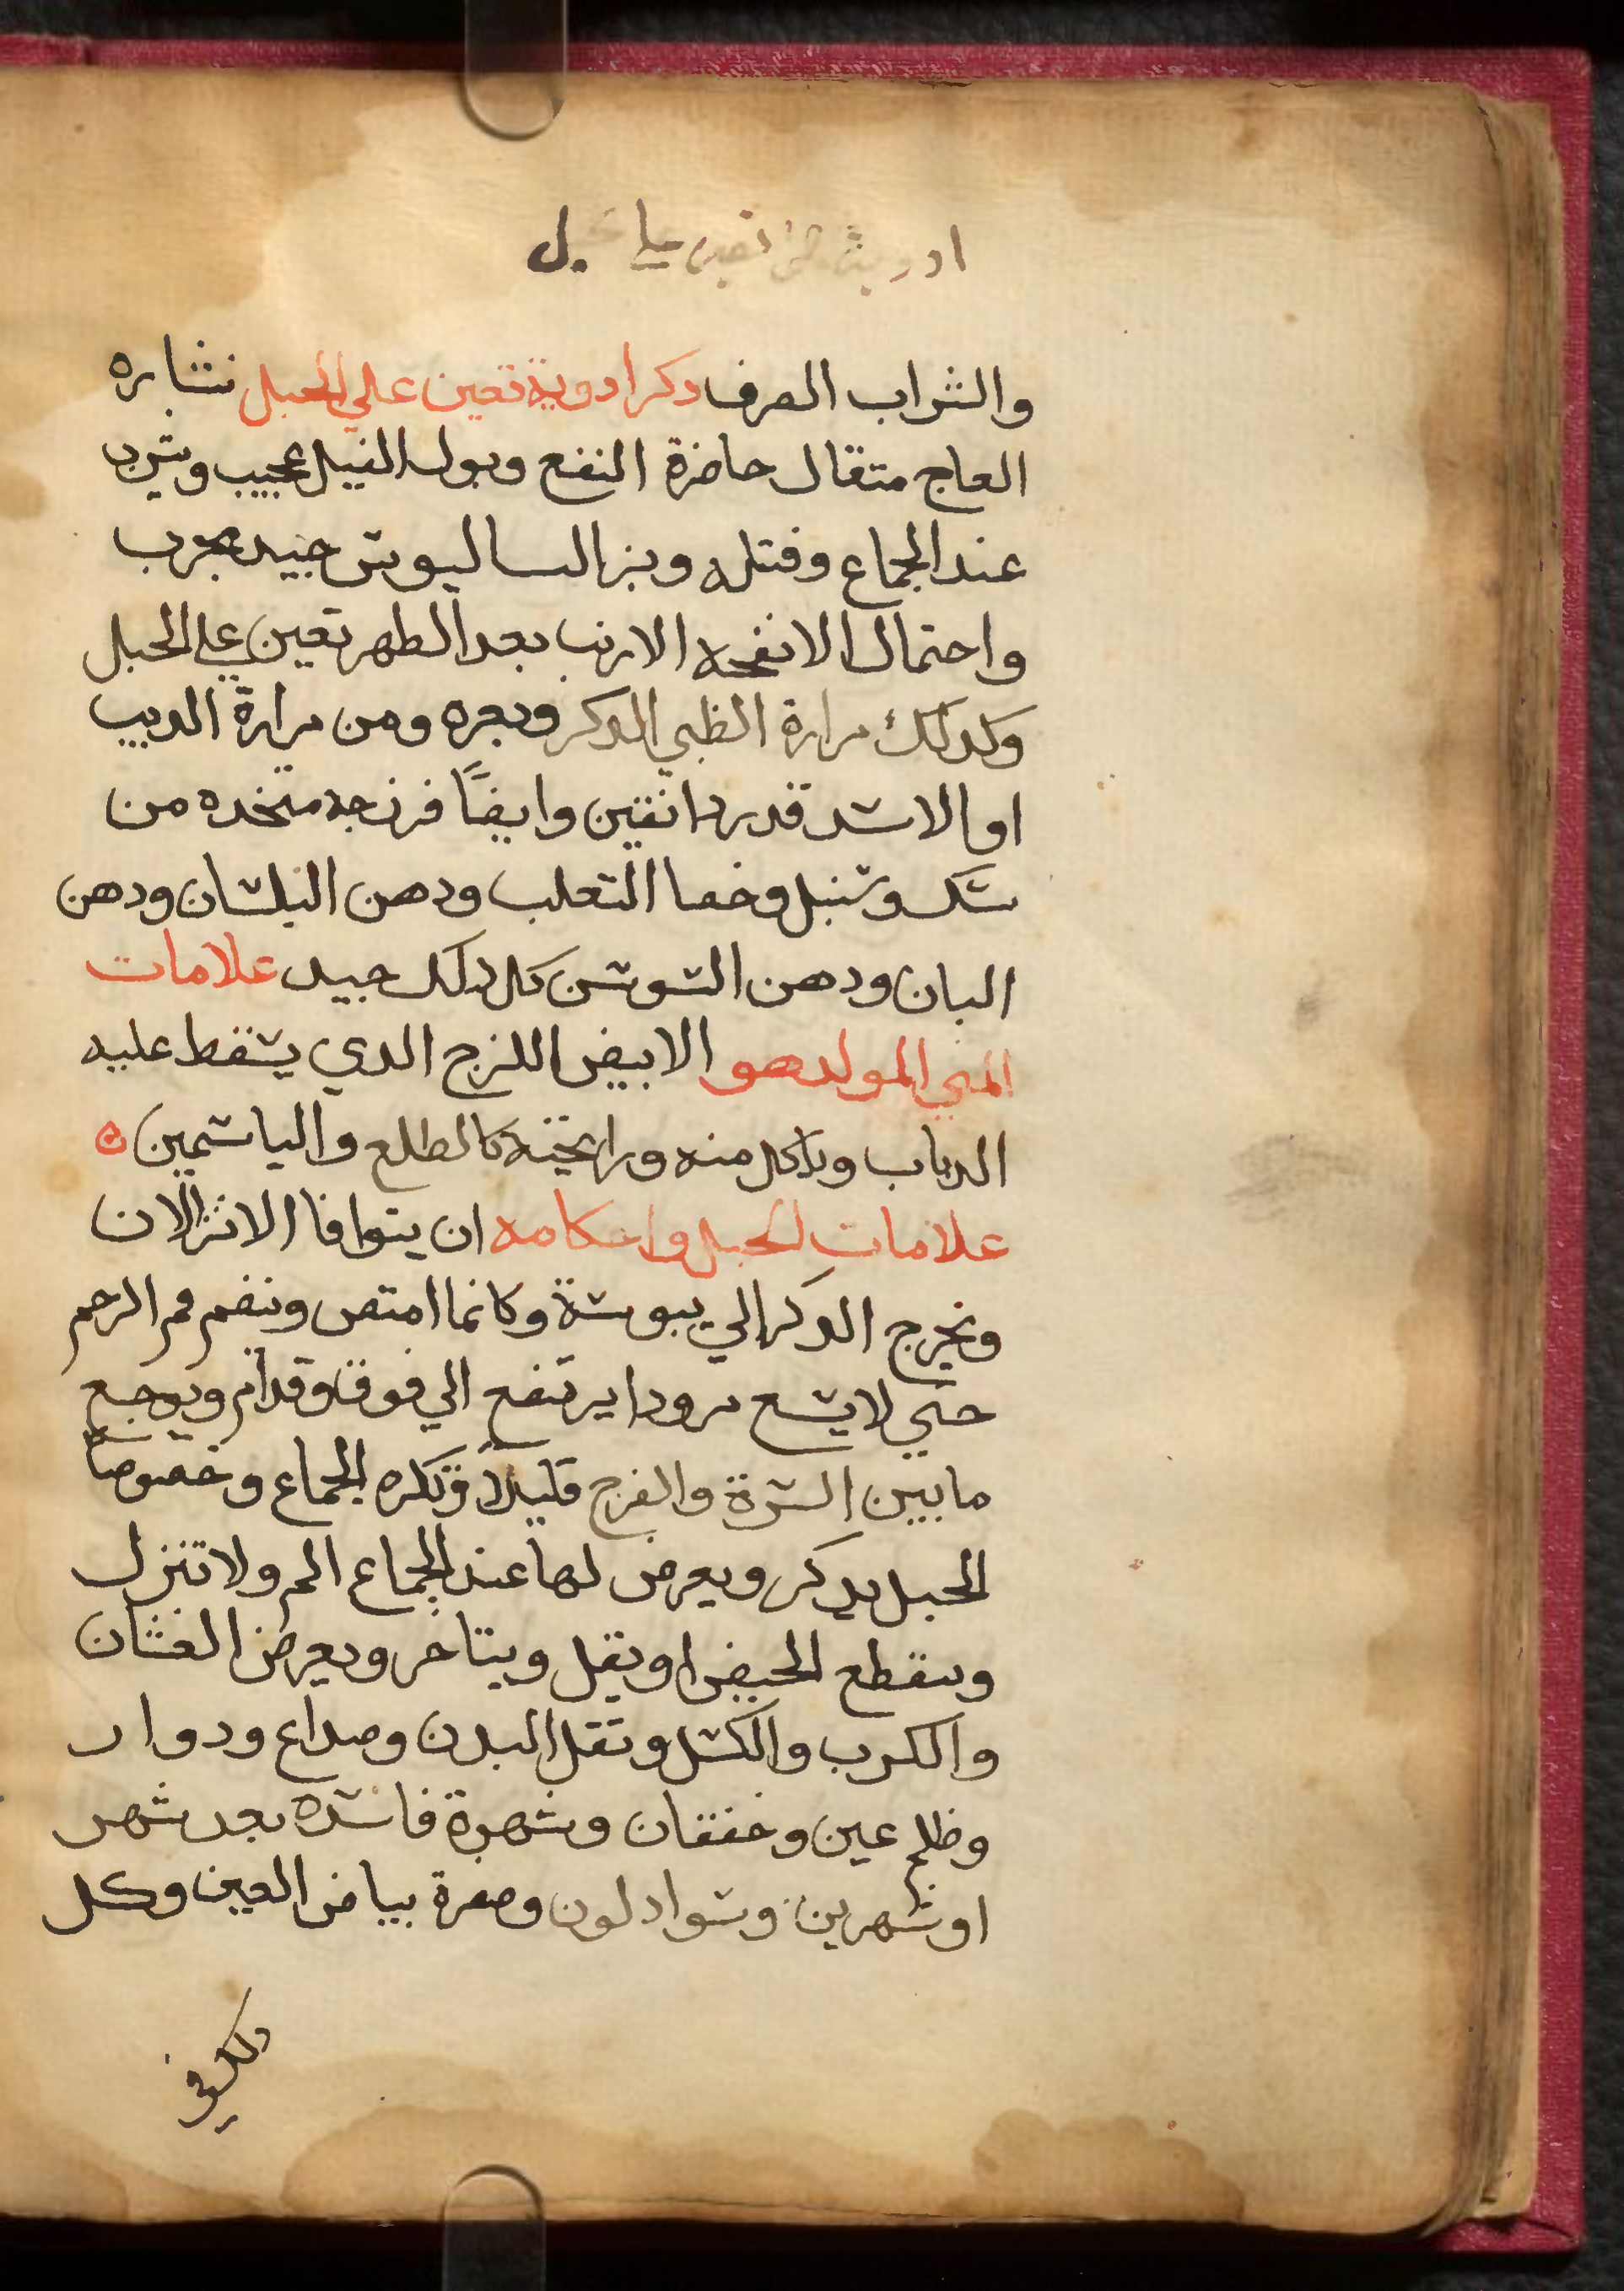 والشراب الصرف دكر ادوية تعين علي الحبل نشاره
العاج متقال حاضرة النفع وبول الفيل عجيب ويشرب
عند الجماع وفتله وبزر الساليوش جيد مجرب
واحتمال الانفحه الارنب بعد الطهر تعين علي الحبل
وكدلك مرارة الظبي الدكر وبعره ومن مرارة الديب
او الاسد قدر دانقين وايضًا فرزجه متخده من
سك وسنبل وخصا التعلب ودهن البلسان ودهن
البان ودهن السوسن كل دلك جيد علامات
المني المولد هو الابيض اللزج الدي يسقط عليه
الدباب وياكل منه ورايحته كالطلع والياسمين ه
علامات الحبل واحكامه ان يتوافا الانزالان
ويخرج الدكر الي يبوسة وكانما امتص وينضم فم الرحم
حتي لا يسع مرودا يرتفع الي فوق وقدام ويوجع
ما بين السرة والفرج قليلاً وتكره الجماع وخصوصاً
الحبل بدكر ويعرض لها عند الجماع الم ولا تنزل
وينقطع الحيض او يقل ويتاخر ويعرض الغثان
والكرب والكسل وتقل البدن وصداع ودوار
وظلم عين وخفقان وشهوة فاسده بعد شهر
او شهرين وسواد لون وصفرة بياض العين وكل